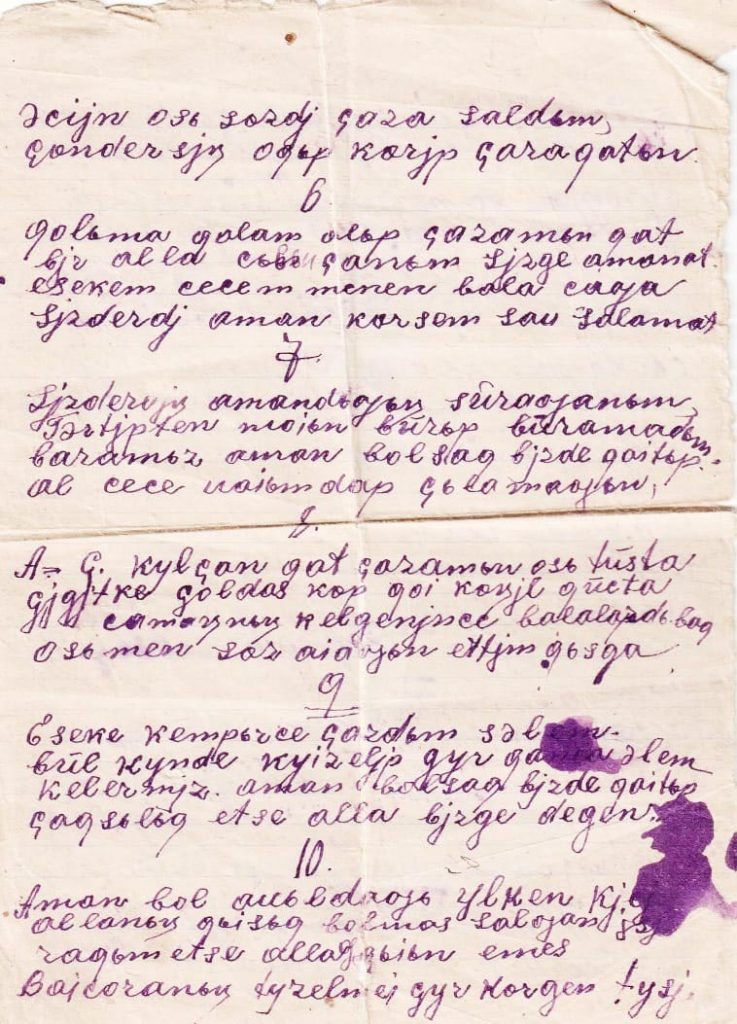 əcijn osь sɵzdj çaza saldьm,
çondersjꞑ oqьp kɵrjp çaza qatьn.
6
qolьma qalam alьp çazamьn qat
bjr alla çanьm sjzge amanat.
esekem cecem menen bala caƣa
sjzderdj aman kɵrsem sau salamat
7.
sjzderdjꞑ amandьƣьꞑ sūraƣanьm,
Tərtjpten moiьn būrьp būramadьm.
baramьz aman bolsaq bjzde qaitьp.
al cece uaiьmdap çьlamaƣьn,
8.
A-Ç. kylçan qat çazamьn osь tūsta
çjgjtke çoldas kɵp qoi kɵꞑjl qūcta
camaꞑnьꞑ kelgenjnce balalardь baq
osь men sɵz aiaƣьn ettjm qьsqa
9
Eseke kempjrce çazdьm səlem.
būl kynde kyizeljp çyr əlem
kelermjz. aman bolsaq bjzde qaitьp
çaqsьlьq etse alla bjzge degen.
10.
Aman bol auьldaƣь ylken kjcj
allanьꞑ qьisьq bolmas salƣan jsj
raqьm etse alla qьiьn emes
Baicoranьꞑ tyzelmej çyr kɵrgen tysj.